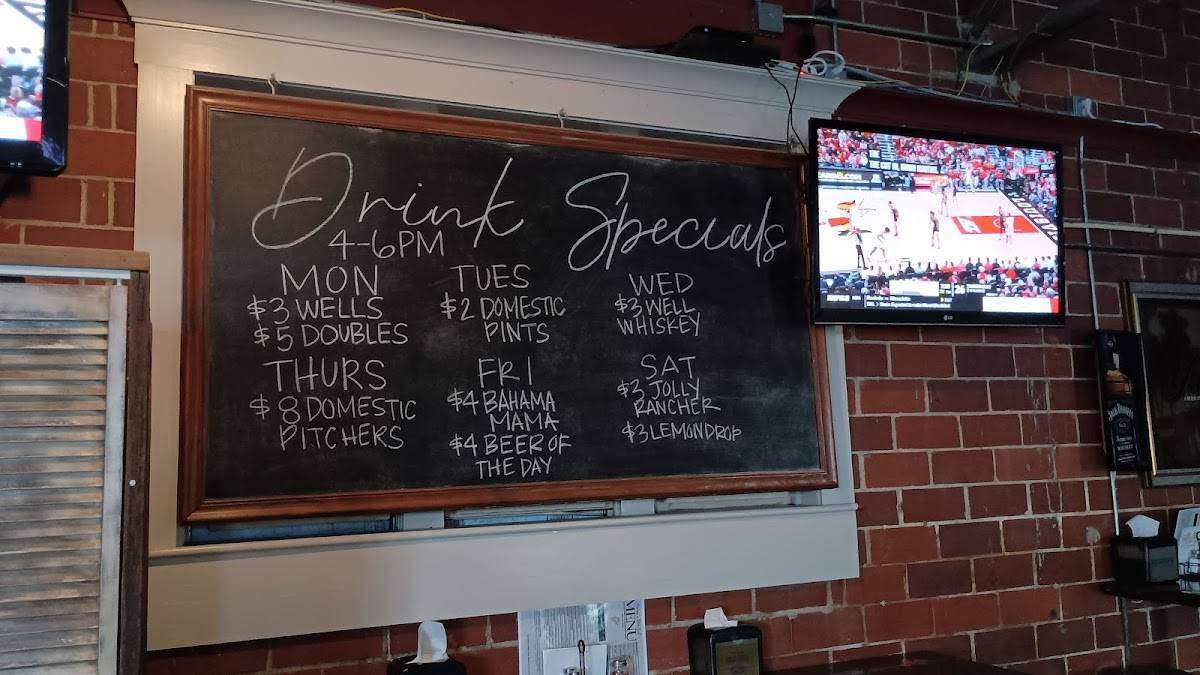 Drink Specials
4-6PM
MON
$3 WELLS
$5 DOUBLES
TUES
$2 DOMESTIC
PINTS
WED
$3 WELL
WHISKEY
THURS
$8 DOMESTIC
PITCHERS
FRI
$4 BAHAMA
MAMA
$4 BEER OF
THE DAY
SAT
$3 JOLLY
RANCHER
$3 LEMONDROP
LG
MENU